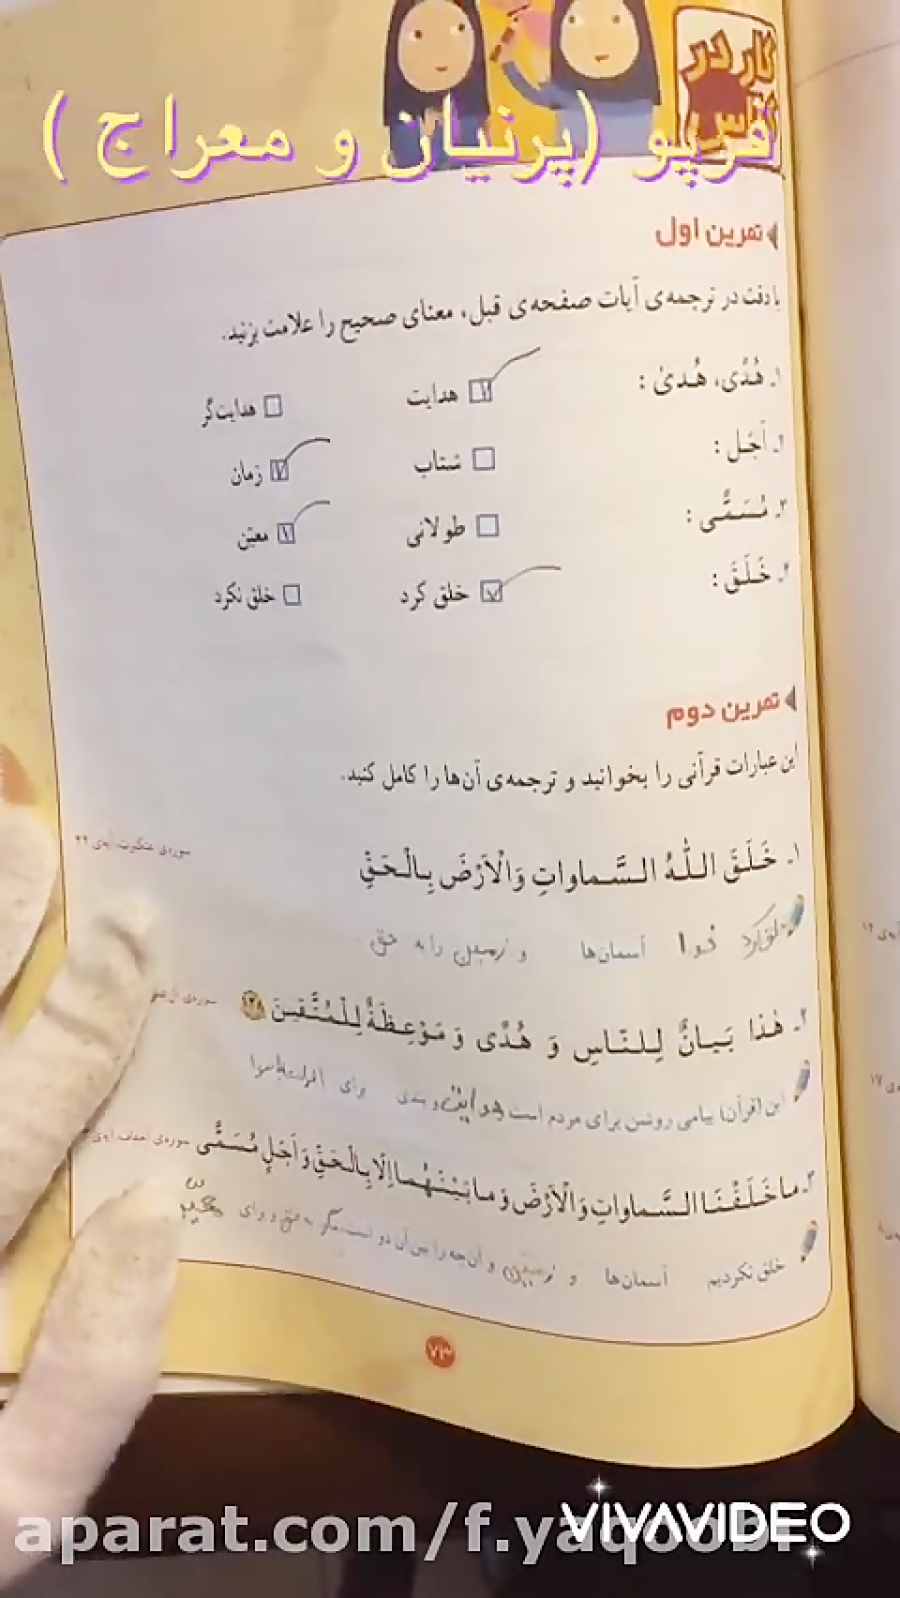 کار در کلاس
فرپو (پرنیان و معراج )
تمرین اول
با دقت در ترجمه‌ی آیات صفحه‌ی قبل، معنای صحیح را علامت بزنید.
۱ـ هُدًی، هُدیٰ : هدایت هدایت‌گر
۲ـ اَجَل : شتاب زمان
۳ـ مُسَمًّی : طولانی معیّن
۴ـ خَلَقَ : خلق کرد خلق نکرد
تمرین دوم
این عبارات قرآنی را بخوانید و ترجمه‌ی آن‌ها را کامل کنید.
۱ـ خَلَقَ اللّٰهُ السَّماواتِ وَالْاَرْضَ بِالْحَقِّ سوره‌ی عنکبوت، آیه‌ی ۴۴
خلق کرد خدا آسمان‌ها و زمین را به حق
۲ـ هٰذا بَیانٌ لِلنّاسِ وَ هُدًی وَ مَوْعِظَةٌ لِلْمُتَّقینَ سوره‌ی آل
این (قرآن) پیامی روشن برای مردم است هدایت و پندی برای افراد
۳ـ ما خَلَقْنَا السَّماواتِ وَالْاَرْضَ وَ ما بَیْنَهُما اِلّا بِالْحَقِّ وَ اَجَلٍ مُسَمًّی سوره‌ی احقاف، آیه‌ی ۳
خلق نکردیم آسمان‌ها و زمین و آن‌چه را بین آن دو است، مگر به حق و برای
۷۳
VIVAVIDEO
aparat.com/f.yaqoobi